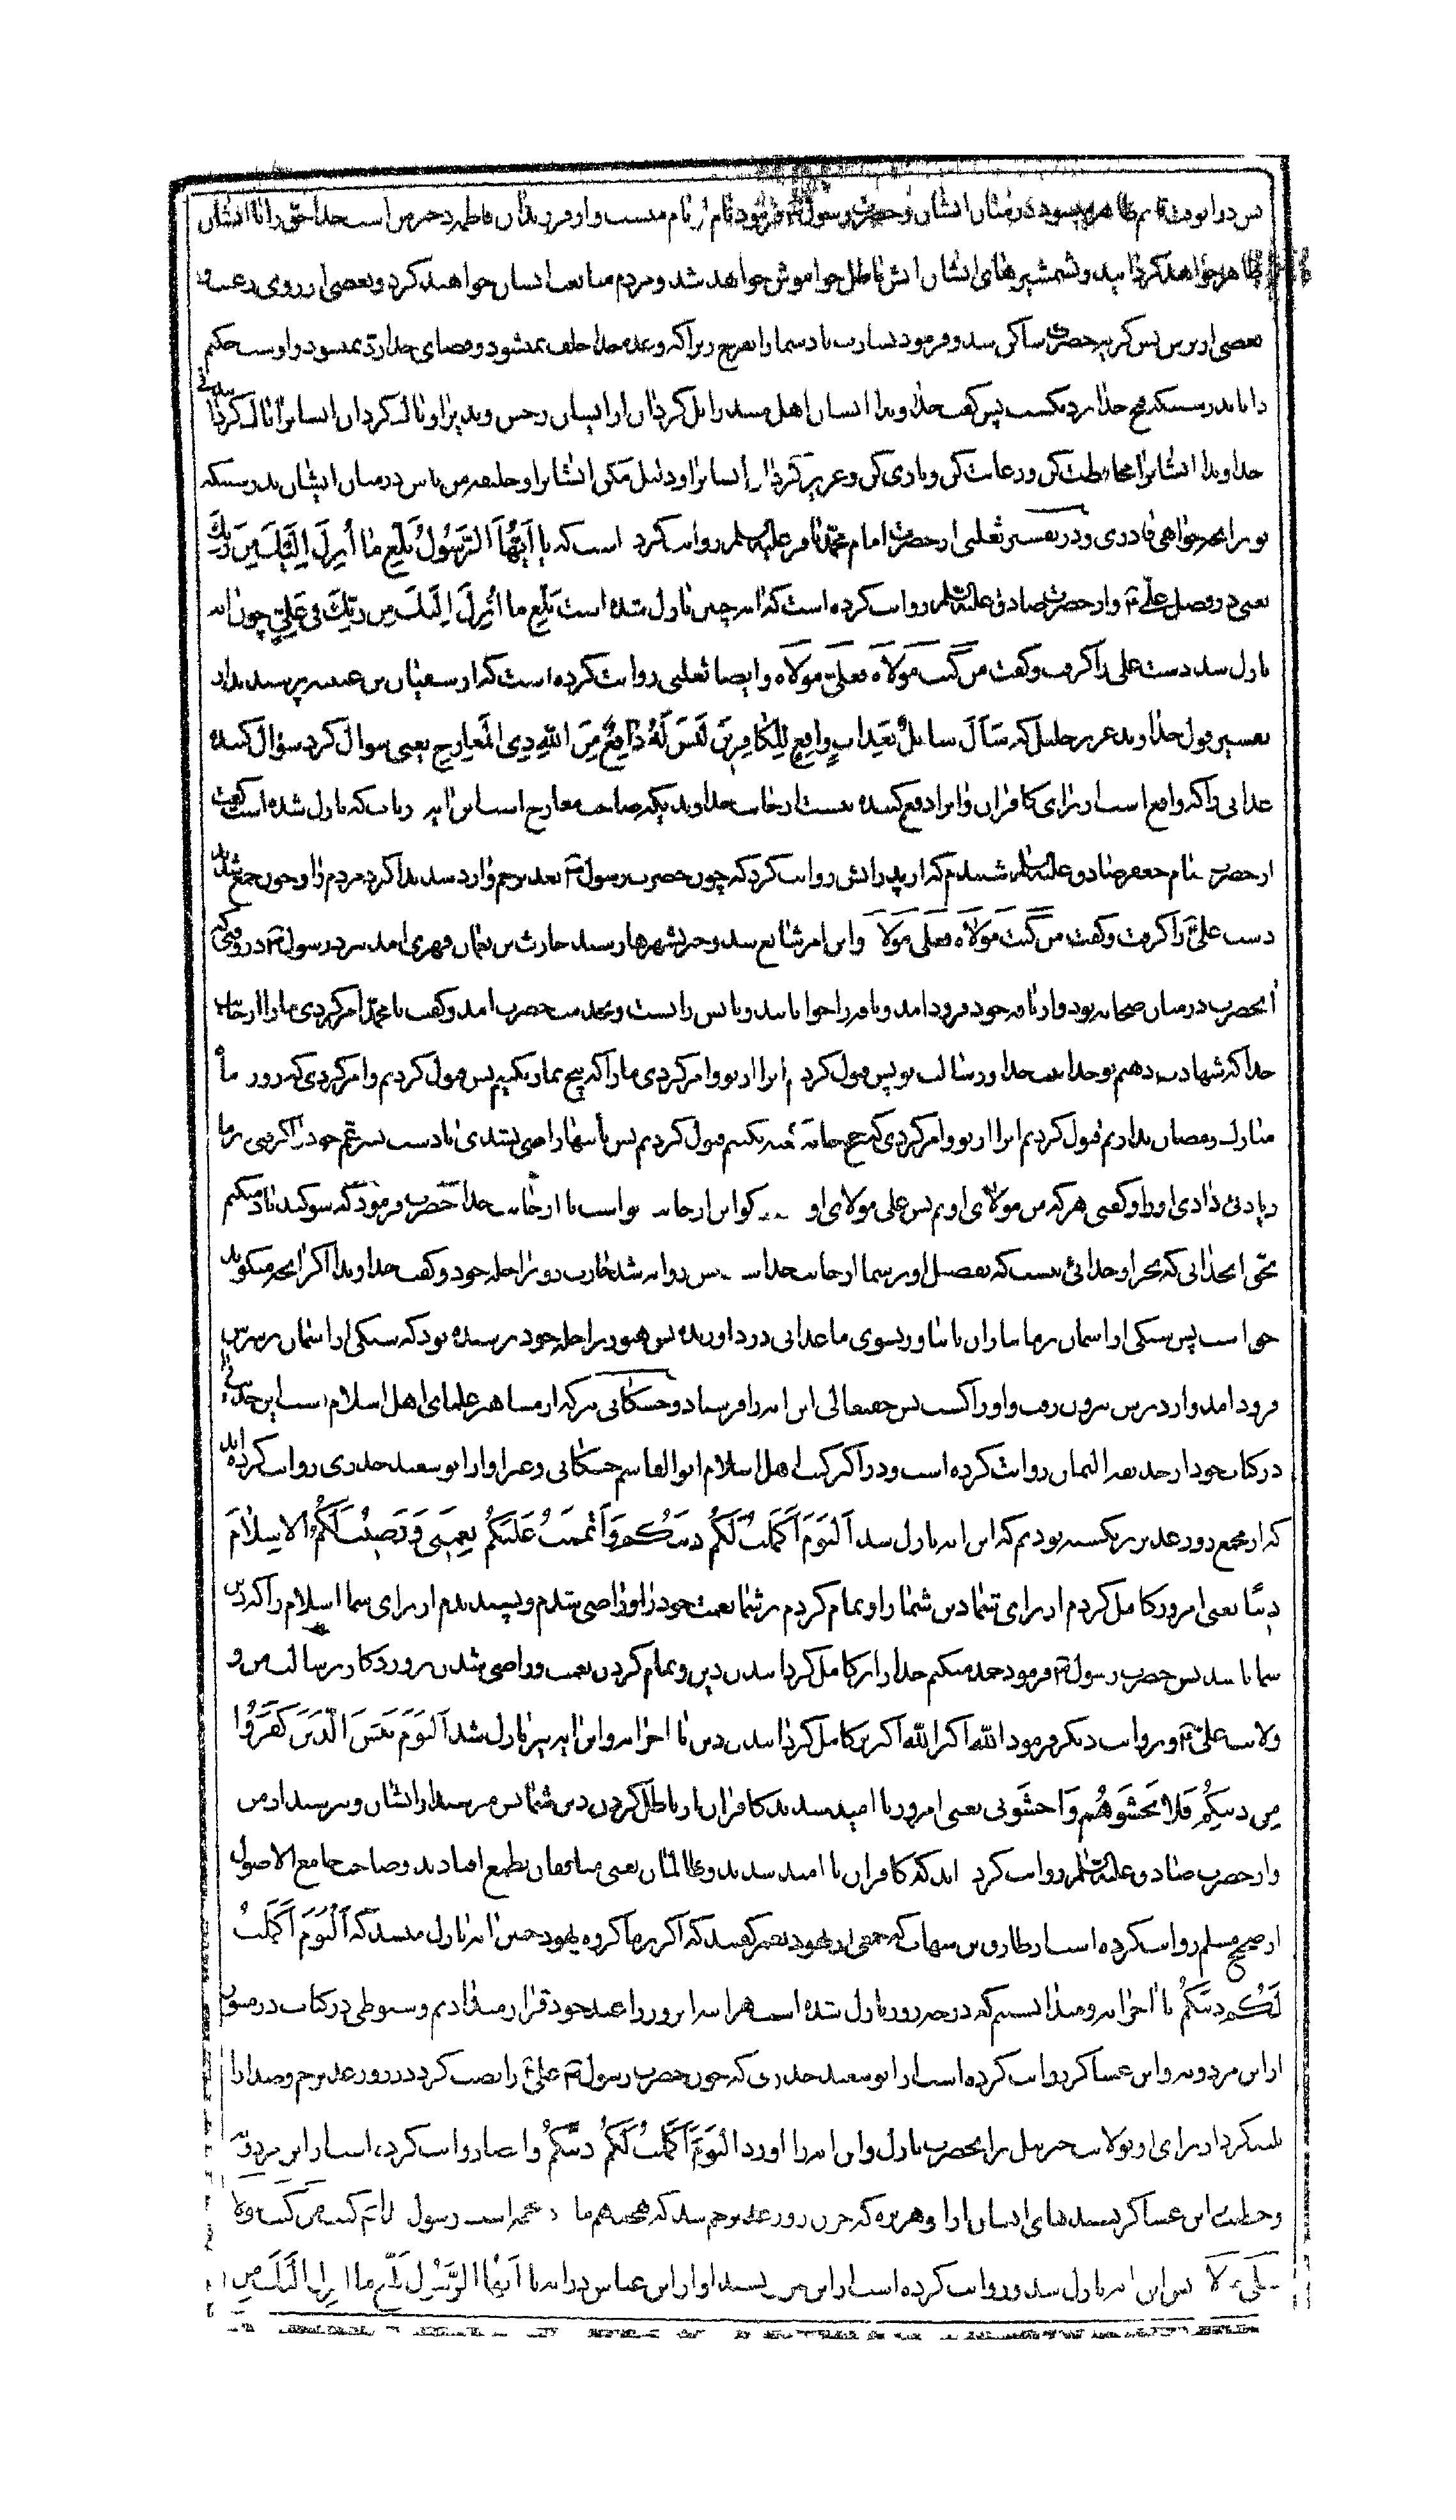 پس در آنوقت قائم ظاهر میشود در میان ایشان و حضرت رسول فرمود نام او نام منست و او از فرزندان فاطمه دختر من است خدا حق را با ایشان
ظاهر خواهد گردانید و بشمشیرهای ایشان آتش باطل خواموش خواهد شد و مردم متابعت ایشان خواهند کرد و بعضی از روی رغبت و
بعضی از ترس پس گریه حضرت ساکن شد و فرمود بشارت باد شما را بفرج زیرا که وعده خدا خلف نمیشود و قضای خدا رد نمیشود و اوست حکیم
دانا بدرستیکه فتح خدا نزدیکست پس گفت خداوندا ایشان اهل منند زایل گردان از ایشان رجس و بدیرا و پاک گردان ایشانرا پاک کردنی
خداوندا ایشانرا محافظت کن و رعایت کن و یاری کن و عزیز گردان ایشانرا و ذلیل مکن ایشانرا و خلیفه من باش در میان ایشان بدرستیکه
تو بر آنچه خواهی قادری و در تفسیر ثعلبی از حضرت امام محمد باقر علیه السلم روایت کرده است که یا أَیُّهَا الرَّسُولُ بَلِّغْ ما أُنْزِلَ إِلَیْكَ مِنْ رَبِّكَ
یعنی در فضل علی و از حضرت صادق علیه السلم روایت کرده است که آیه چنین نازل شده است بَلِّغْ ما أُنْزِلَ إِلَیْكَ مِنْ رَبِّكَ فی عَلِیٍّ چون آیه
نازل شد دست علی را گرفت و گفت من کنت مولاه فعلی مولاه و ایضا ثعلبی روایت کرده است که از سفیان بن عیینه پرسیدند از
تفسیر قول خداوند عزیز جلیل که سَأَلَ سائِلٌ بِعَذابٍ واقِعٍ لِلْکافِرینَ لَیْسَ لَهُ دافِعٌ مِنَ اللّهِ ذِی الْمَعارِجِ یعنی سوال کرد سؤال کننده
عذابی را که واقع است از برای کافران و آنرا دفع کننده نیست از جانب خداوندیکه صاحب معارج است این آیه در باب که نازل شده است گفت
از حضرت امام جعفر صادق علیه السلم شنیدم که از پدرانش روایت کرد که چون حضرت رسول بغدیر خم وارد شد ندا کرد مردم را و چون جمع شدند
دست علی را گرفت و گفت من کنت مولاه فعلی مولاه و این امر شایع شد و خبر بشهرها رسید حارث بن نعمان فهری آمد بنزد رسول در وقتیکه
آنحضرت در میان صحابه بود و از ناقه خود فرود آمد و ناقه را خوابانید و پایش را بست و بخدمت حضرت آمد و گفت یا محمد امر کردی ما را از جانب
خدا که شهادت دهیم بوحدانیت خدا و رسالت تو پس قبول کردیم اینرا از تو و امر کردی ما را که پنج نماز بکنیم پس قبول کردیم و امر کردی که روزه ماه
مبارک رمضان بداریم قبول کردیم اینرا از تو و امر کردی که حج خانه کعبه بکنیم قبول کردیم پس باینها راضی نشدی تا دست پسر عم خود را گرفتی بر ما
زیادتی دادی او را و گفتی هر که من مولای اویم پس علی مولای او گو این از جانب تواست یا از جانب خدا حضرت فرمود که سوگند یاد میکنم
بحق آنخدائی که بجز او خدائی نیست که تفضیل او بر شما از جانب خداست پس روانه شد حارث رو براحله خود و گفت خداوندا اگر آنچه میگوید
حق است پس سنگی از آسمان بر ما بباران یا بیاور بسوی ما عذابی دردآورنده پس هنوز براحله خود نرسیده بود که سنگی از آسمان بر سرش
فرود آمد و از دبرش بیرون رفت و او را کشت پس حقتعالی این آیه را فرستاد و حسکانی نیز که از مشاهیر علمای اهل اسلام است این حدیث را
در کتاب خود از حذیفة الیمان روایت کرده است و در اکثر کتب اهل اسلام ابوالقاسم حسکانی و غیر او از ابو سعید خدری روایت کرده اند
که از مجمع روز غدیر برنگشته بودیم که این آیه نازل شد اَلْیَوْمَ أَکْمَلْتُ لَکُمْ دینَکُمْ وَأَتْمَمْتُ عَلَیْکُمْ نِعْمَتی وَ رَضیتُ لَکُمُ الْاِسْلامَ
دیناً یعنی امروز کامل کردم از برای شما دین شما را و تمام کردم بر شما نعمت خود را و راضی شدم و پسندیدم از برای شما اسلام را که دین
شما باشد پس حضرت رسول فرمود حمد میکنم خدا را بر کامل گردانیدن دین و تمام کردن نعمت و راضی شدن پروردگار برسالت من و
ولایت علی و بروایت دیگر فرمود الله اکبر الله اکبر بر کامل گردانیدن دین تا آخر آیه و این آیه نیز نازل شد اَلْیَوْمَ یَئِسَ الَّذینَ کَفَرُوا
مِنْ دینِکُمْ فَلا تَخْشَوْهُمْ وَاخْشَوْنی یعنی امروز ناامید شدند کافران از باطل کردن دین شما پس مترسید از ایشان و بترسید از من
و از حضرت صادق علیه السلم روایت کرده اند که کافران ناامید شدند و ظالمان یعنی منافقان بطمع افتادند و صاحب جامع الاصول
از صحیح مسلم روایت کرده است از طارق بن شهاب که جمعی از یهود بعمر گفتند که اگر بر ما گروه یهود چنین آیه نازل میشد که اَلْیَوْمَ أَکْمَلْتُ
لَکُمْ دینَکُمْ تا آخر آیه و میدانستیم که در چه روز نازل شده است هر آینه آنروز را عید خود قرار میدادیم و سیوطی در کتاب در منثور
از ابن مردویه و ابن عساکر روایت کرده است از ابو سعید خدری که چون حضرت رسول علی را نصب کرد در روز غدیر خم و ندا را
بلند کرد از برای او بولایت جبرئیل بر آنحضرت نازل و این آیه را آورد الْیَوْمَ أَکْمَلْتُ لَکُمْ دینَکُمْ و ایضا روایت کرده است از ابن مردویه
و خطیب و ابن عساکر بسندهای ایشان از ابو هریره که چون روز غدیر خم شد که هجدهم ماه ذیحجه است رسول
پس این آیه نازل شد و روایت کرده است از ابن جریر بسند او از ابن عباس در آیه یا أَیُّهَا الرَّسُولُ بَلِّغْ ما أُنْزِلَ إِلَیْكَ مِنْ